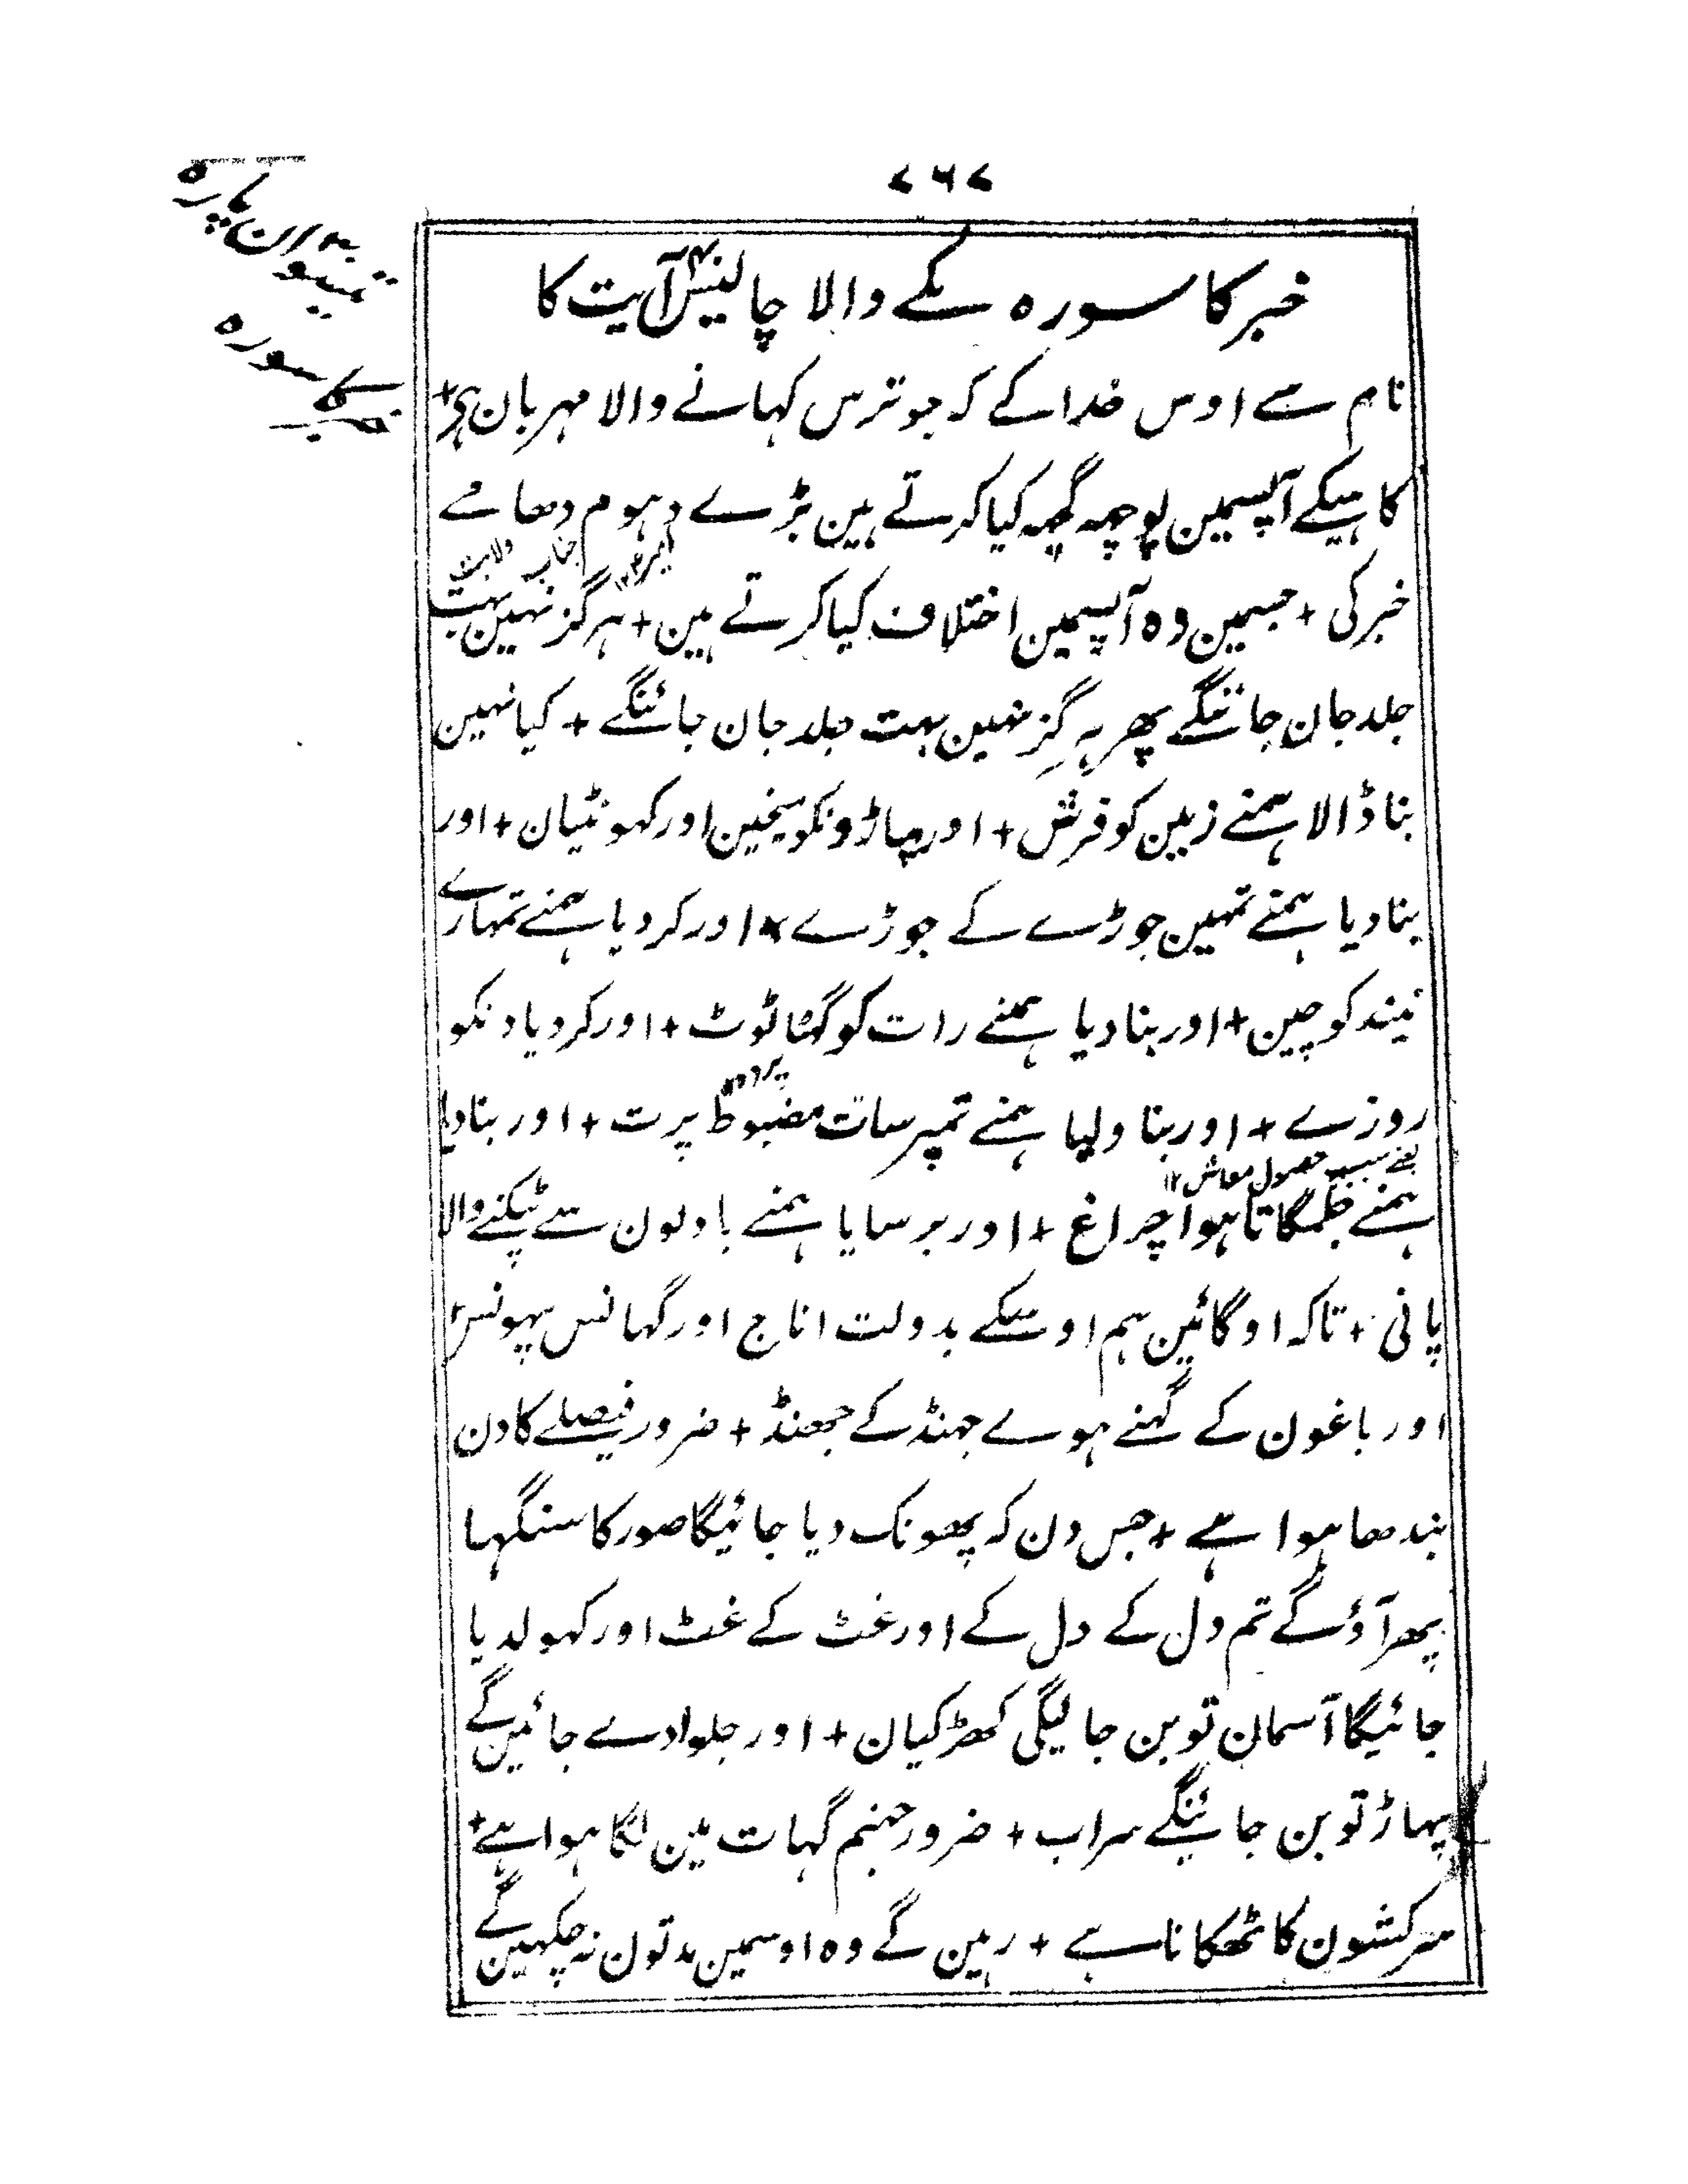 ۷۶۷
تیسواں پارہ
خبر کا سورہ
خبر کا سورہ مکے والا چالیس آیت کا
نام سے اوس خدا کے کہ جو ترس کہانے والا مہربان ہی +
کاہیکے آپسمین پوچھہ گچھہ کیا کرتے ہین بڑے دہوم دھامے
خبر کی + جسمین وہ آپسمین اختلاف کیا کرتے ہین + ہرگز نہین بہت
جلد جان جائنگے پھر ہرگز نہین بہت جلد جان جائنگے + کیا نہین
بنا ڈالا ہمنے زمین کو فرش + اور پہاڑونکو میخین اور کہونٹیان + اور
بنا دیا ہمنے تمہین جوڑے کے جوڑے + اور کر دیا ہمنے تمہارے
نیند کو چین + اور بنا دیا ہمنے رات کو گھٹاٹوٹ + اور کر دیا دنکو
پردہ
روزے + اور بنا ولیا ہمنے تمپر سات مضبوط پرت + اور بنا دیا
یعنے سبب حصول معاش ۱۲
ہمنے جگمگاتا ہوا چراغ + اور برسایا ہمنے بادلون سے ٹپکنے والا
پانی + تاکہ اوگائین ہم اوسکے بدولت اناج اور گہانس پہونس
اور باغون کے گہنے ہوے جہنڈ کے جھنڈ + ضرور فیصلے کا دن
بندھا ہوا ہے + جس دن کہ پھونک دیا جائیگا صور کا سنگہا
پھر آؤ گے تم دل کے دل کے اور غٹ کے غٹ اور کہولدیا
جائیگا آسمان تو بن جائیگی کھڑکیان + اور جلوا دے جائین گے
پہاڑ تو بن جائینگے سراب + ضرور جہنم گہات مین لگا ہوا ہے +
سرکشون کا ٹھکانا ہے + رہین گے وہ اوسمین مدتون نہ چکہین گے